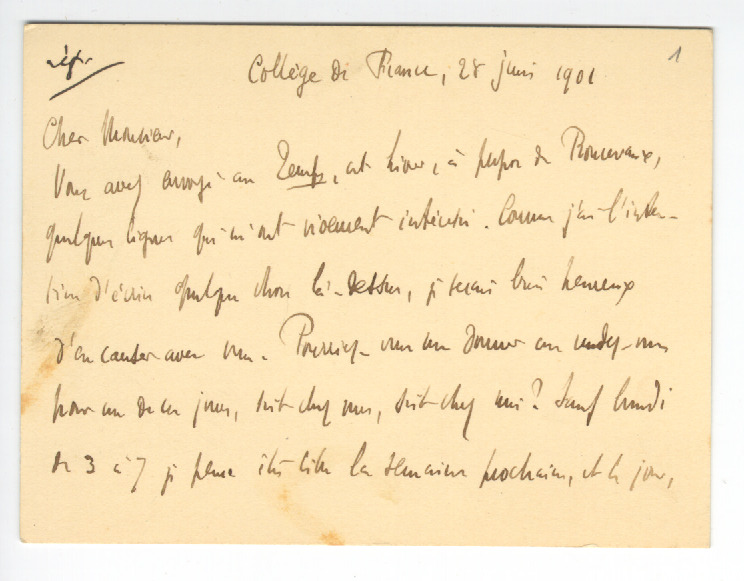 répr
1
Collège de France, 28 juin 1901
Cher Monsieur,
Vous avez envoyé au Temps, cet hiver, à propos de Roncevaux,
quelques lignes qui m'ont vivement intéressé. Comme j'ai l'inten-
tion d'écrire quelque chose là-dessus, je serais bien heureux
d'en causer avec vous. Pourriez-vous me donner un rendez-vous
pour un de ces jours, soit chez vous, soit chez moi? Sauf lundi
de 3 à 7 je pense être libre la semaine prochaine, et le jour,